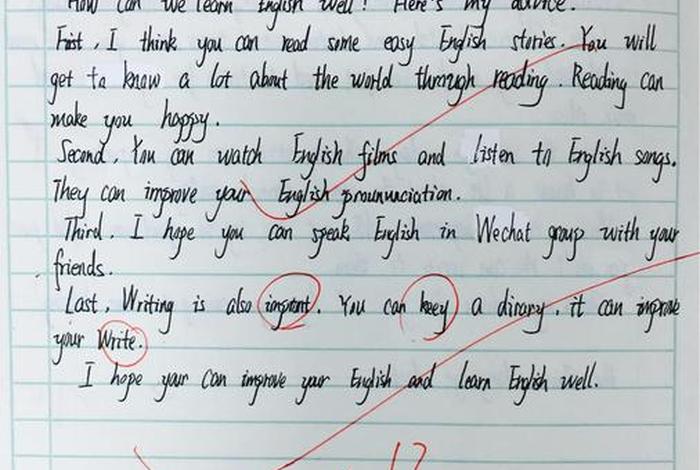 How can we learn English well? Here's my advice.
First, I think you can read some easy English stories. You will
get to know a lot about the world through reading. Reading can
make you happy.
Second, You can watch English films and listen to English songs.
They can improve your English prounuciation.
Third. I hope you can speak English in Wechat group with your
friends.
Last, Writing is also impront. You can keey a dirary, it can improve
your Write.
I hope your can improve your English and learn English well.